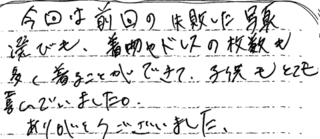 今回は前回の失敗した写真
選びも、着物やドレスの枚数も
多く着ることができて、子供もとても
喜んでいました。
ありがとうございました。